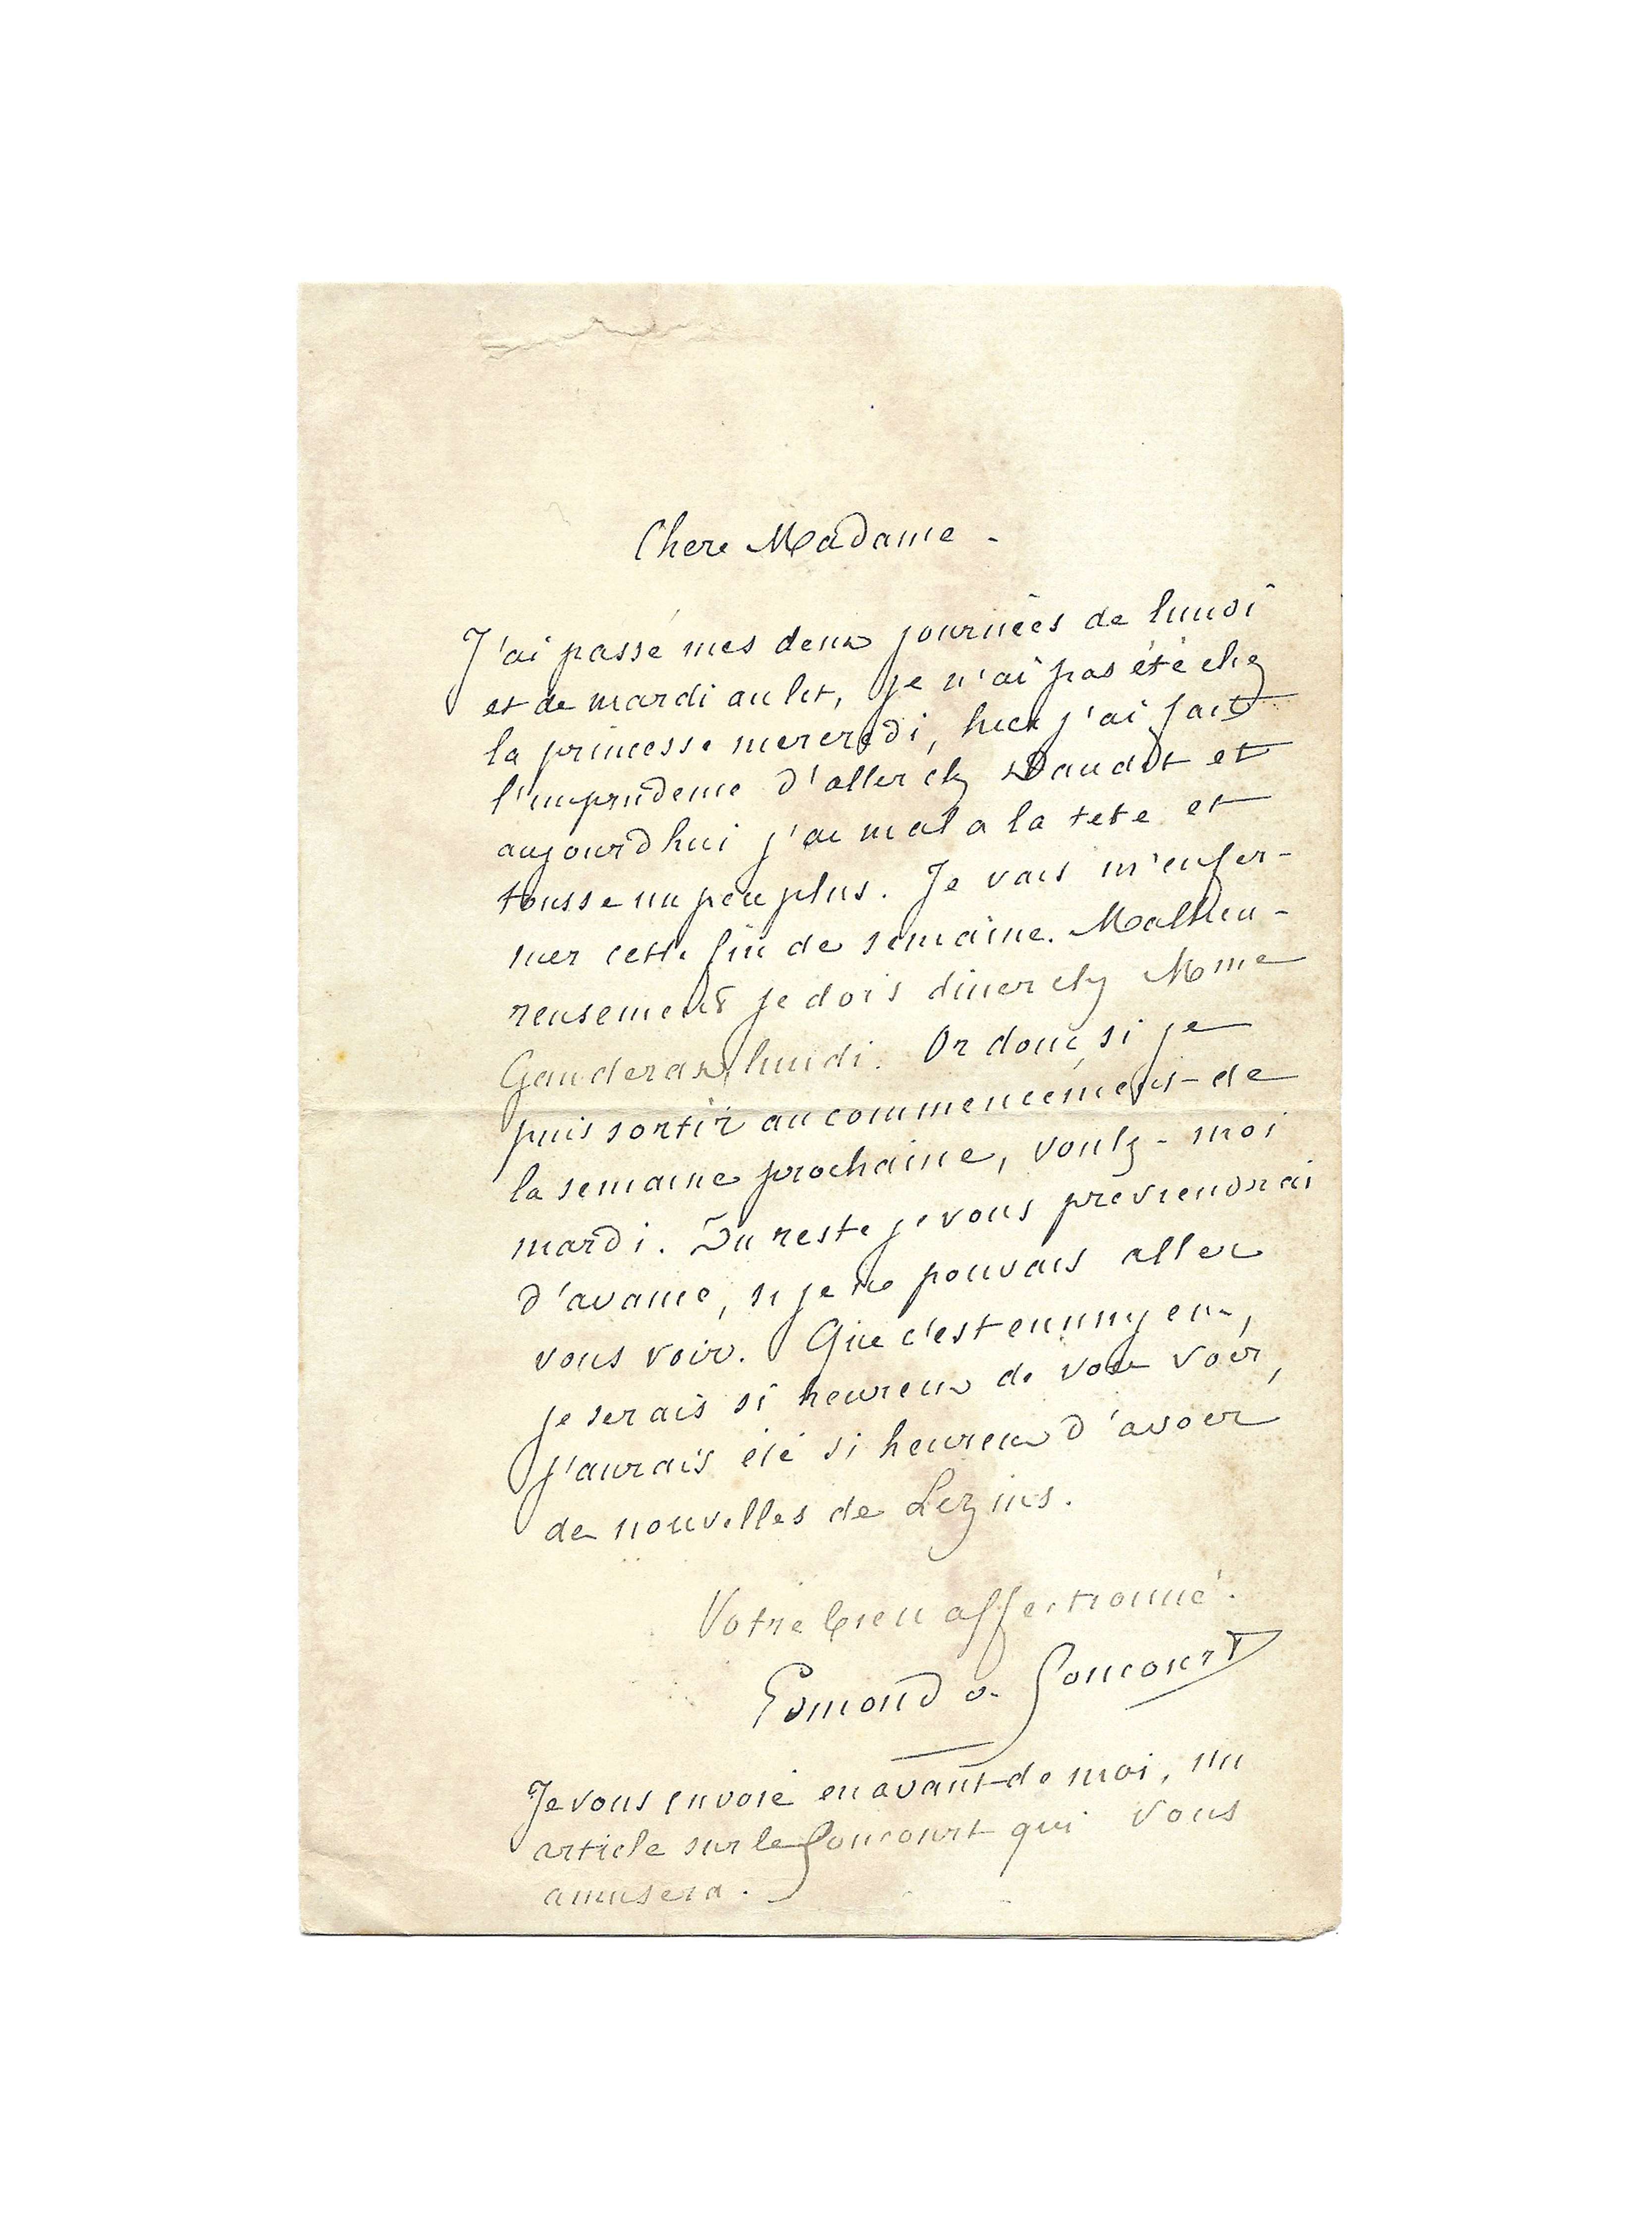 Chere Madame -
J'ai passé mes deux journées de lundi
et de mardi au lit, je n'ai pas été chez
la princesse mercredi, hier j'ai fait
l'imprudence d'aller chz Daudet et
aujourd hui j'ai mal a la tete et
tousse un peu plus. Je vais m'enfer-
mer cette fin de semaine. Malheu-
reusement je dois diner chz Mme
Ganderax lundi. Or donc, si je
puis sortir au commencement de
la semaine prochaine, voulz-moi
mardi. Du reste je vous previendrai
d'avance, si je ne pouvais aller
vous voir. Que c'est ennuyeux,
je serais si heureux de vous voir,
j'aurais été si heureux d'avoir
de nouvelles de Lezins.
Votre bien affectionné.
Edmond de Goncourt
Je vous envoie en avant de moi, un
article sur le Goncourt qui vous
amusera.